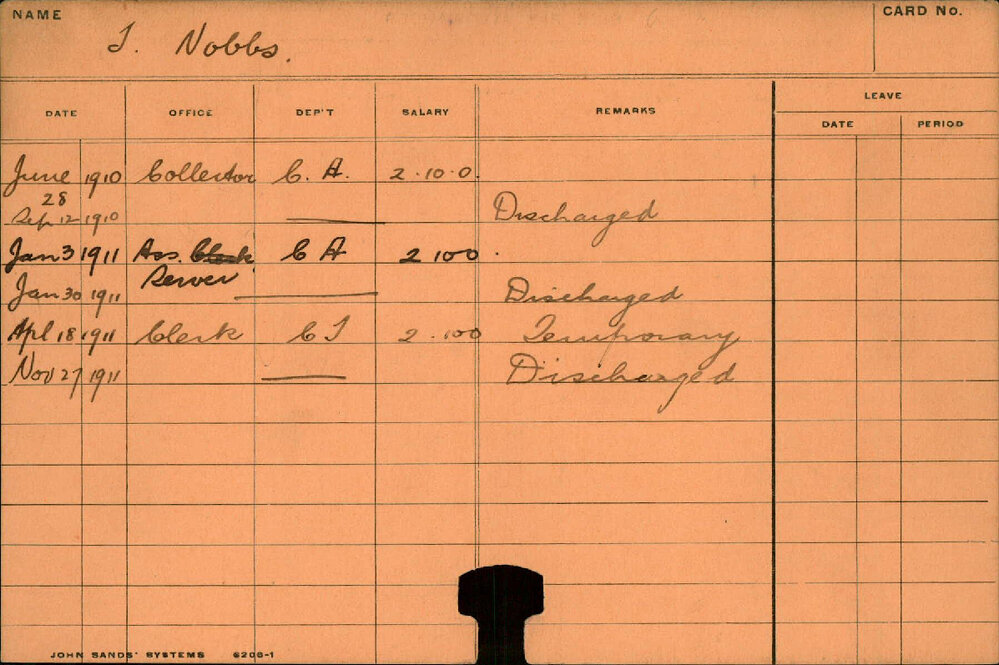 NAME
T. Nobbs.
CARD No.
DATE OFFICE DEP'T SALARY REMARKS LEAVE
DATE PERIOD
June 28 1910 Collector C. A. 2.10.0.
Sep 12 1910 Discharged
Jan 3 1911 Ass. Clerk C A 2 10 0.
Server
Jan 30 1911 Discharged
Apl 18 1911 Clerk C T 2.10 0 Temporary
Nov 27 1911 Discharged
JOHN SANDS' SYSTEMS 6206-1